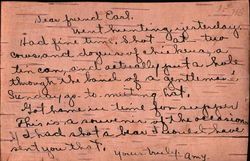 Dear friend Earl.
Went hunting yesterday.
Had fine time, shot at two
cows and dozens of chickens, a
tin can and actually put a hole
through the band of a gentlemen's
Sunday-go-to meeting hat.
Got home in time for supper
This is a souvenir of the occasion
If I had shot a bear I would have
sent you that.
Yours truly. Amy.